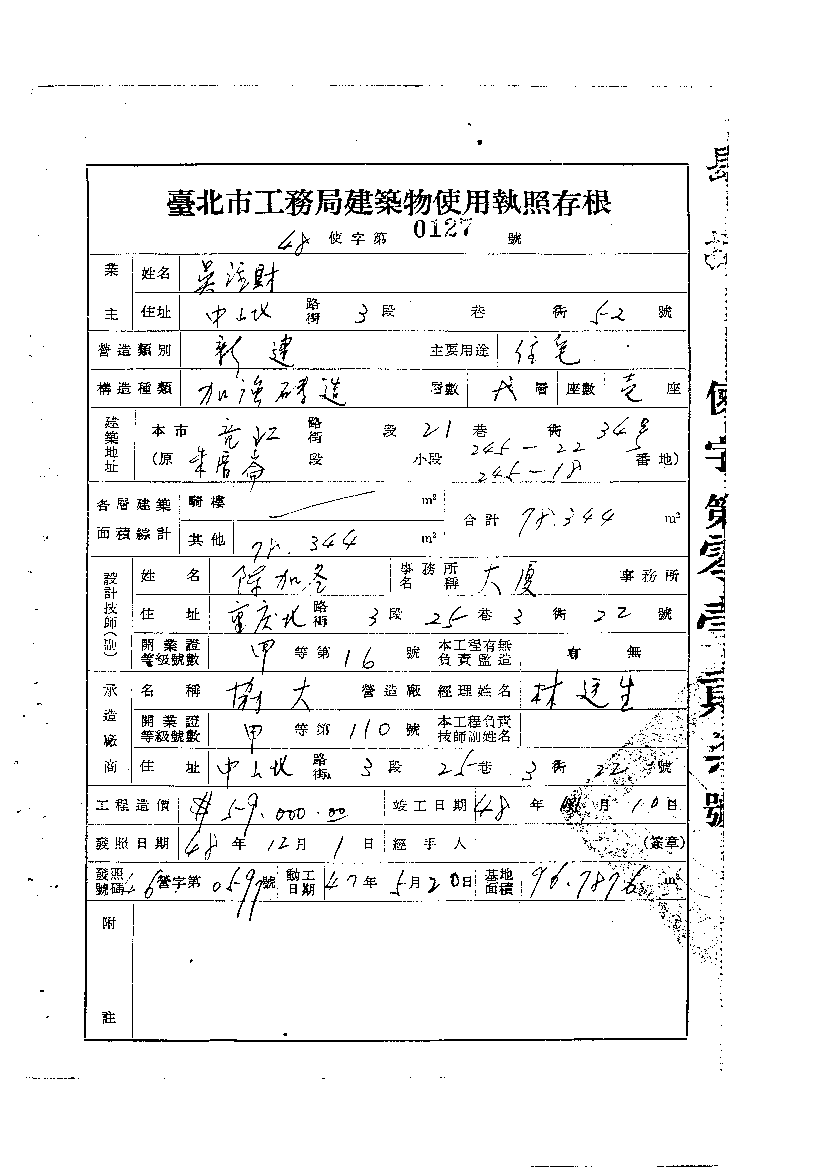 臺北市工務局建築物使用執照存根
48 使字第 0127 號
業主 姓名 吳 財
住址 中山北 路街 3 段 巷 衖 52 號
營造類別 新建 主要用途 住宅
構造種類 加強磚造 層數 弍 層 座數 壱 座
建築地址 本市 龍江 路街 段 21 巷 衖 34號
(原 朱厝崙 段 小段 245-22 245-18 番地)
各層建築面積綜計 騎樓 m² 合計 78.344 m²
其他 78.344 m²
設計技師(副) 姓名 陳加冬 事務所名稱 大廈 事務所
住址 重慶北 路街 3 段 25 巷 3 衖 22 號
開業證等級號數 甲 等第 16 號 本工程有無負責監造 有 無
承造廠商 名稱 協大 營造廠 經理姓名 林廷生
開業證等級號數 甲 等第 110 號 本工程負責技師副姓名
住址 中山北 路街 3 段 25 巷 3 衖 22 號
工程造價 $59.000.00 竣工日期 48 年 月 10 日
發照日期 48 年 12 月 1 日 經手人 (簽章)
發照號碼 46 營字第 0597 號 動工日期 47 年 5 月 20 日 基地面積 96.7876 m²
附註
使字第零壹貳柒號